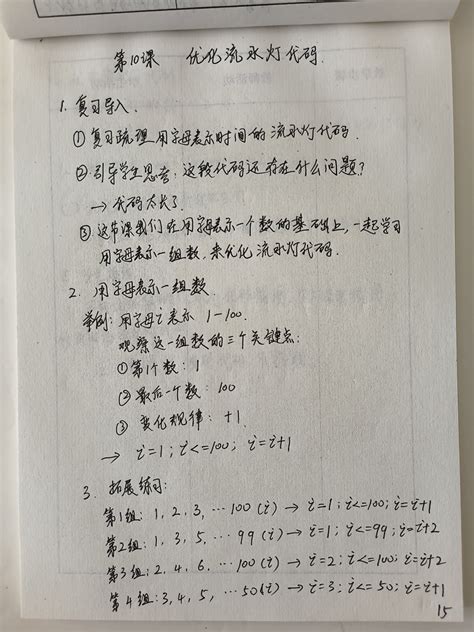 第10课 优化流水灯代码
1. 复习导入
① 复习疏理用字母表示时间的流水灯代码
② 引导学生思考:这段代码还存在什么问题?
→ 代码太长了
③ 这节课我们在用字母表示一个数的基础上,一起学习
用字母表示一组数,来优化流水灯代码.
2. 用字母表示一组数
举例: 用字母i表示 1-100.
观察这一组数的三个关键点:
① 第1个数: 1
② 最后一个数: 100
③ 变化规律: +1
→ i=1; i<=100; i=i+1
3. 拓展练习:
第1组: 1, 2, 3, … 100 (i) → i=1; i<=100; i=i+1
第2组: 1, 3, 5, … 99 (i) → i=1; i<=99; i=i+2
第3组: 2, 4, 6, … 100 (i) → i=2; i<=100; i=i+2
第4组: 3, 4, 5, … 50 (i) → i=3; i<=50; i=i+1
15